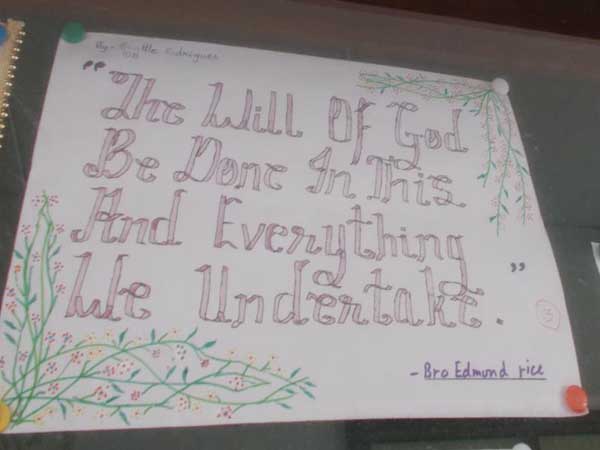 By- Rodrigues
"The Will Of God
Be Done In This
And Everything
We Undertake."
3
- Bro Edmund rice